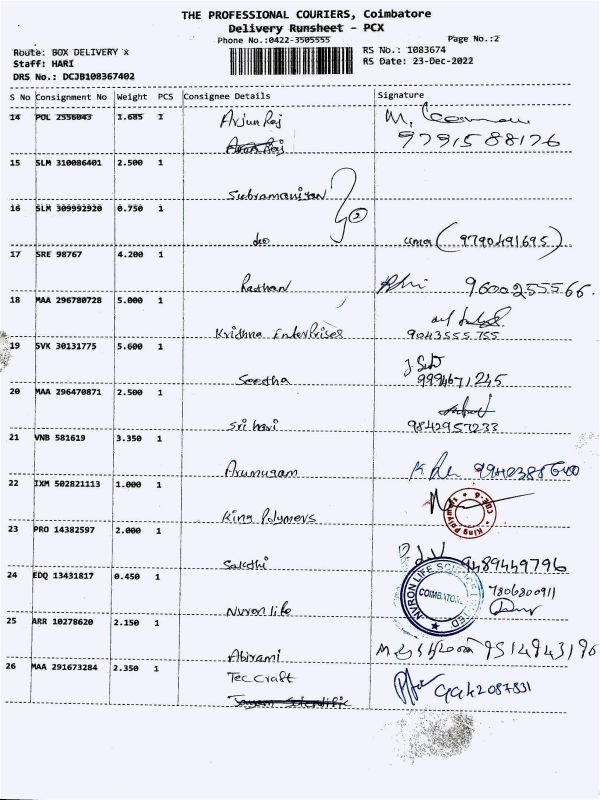 THE PROFESSIONAL COURIERS, Coimbatore
Delivery Runsheet - PCX
Phone No.:0422-3505555 Page No.:2
Route: BOX DELIVERY x RS No.: 1083674
Staff: HARI RS Date: 23-Dec-2022
DRS No.: DCJB108367402
S No Consignment No Weight PCS Consignee Details Signature
14 POL 2556043 1.685 1 Arjun Raj
9791588176
15 SLM 310086401 2.500 1
Subramaniyan
16 SLM 309992920 0.750 1 2
do uma (9790491695)
17 SRE 98767 4.200 1
9600255566.
18 MAA 296780728 5.000 1
Krishna Enterprises 9043555755
19 SVK 30131775 5.600 1
Seetha 9994671245
20 MAA 296470871 2.500 1
Sri hari 9842957233
21 VNB 581619 3.350 1
Arumugam
22 IXM 502821113 1.000 1
King Polymers King Polymers CBE-6
23 PRO 14382597 2.000 1
Sakthi 9489449796
24 EDQ 13431817 0.450 1 NVRON LIFE SCIENCE LIMITED COIMBATORE 7806800911
Nvron life
25 ARR 10278620 2.150 1
Abirami 9514943196
26 MAA 291673284 2.350 1 Tec craft
9442087831